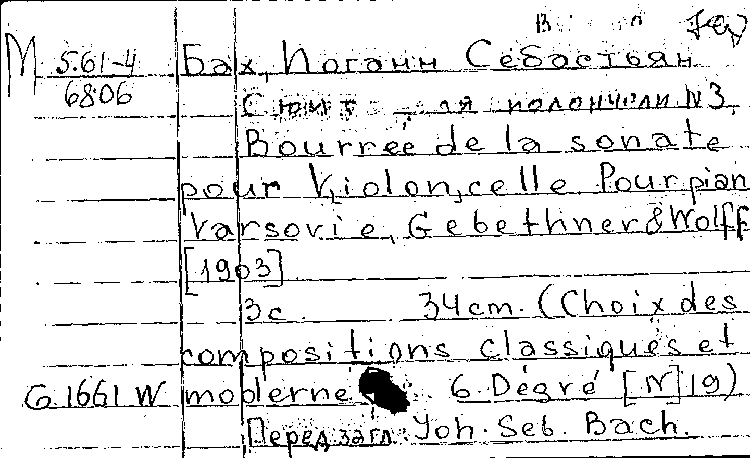 М 5.61-4 Бах, Иоганн Себастьян
6806
виолончели N3.
Bourrée de la sonate
pour Violoncelle Pour pian
Varsovie, Gebethner & Wolff
[1903]
3с. 34 cm. (Choix des
compositions classiques et
G.1661 W moderne 6 Degré [N 19)
Перед загл.: Joh. Seb. Bach.